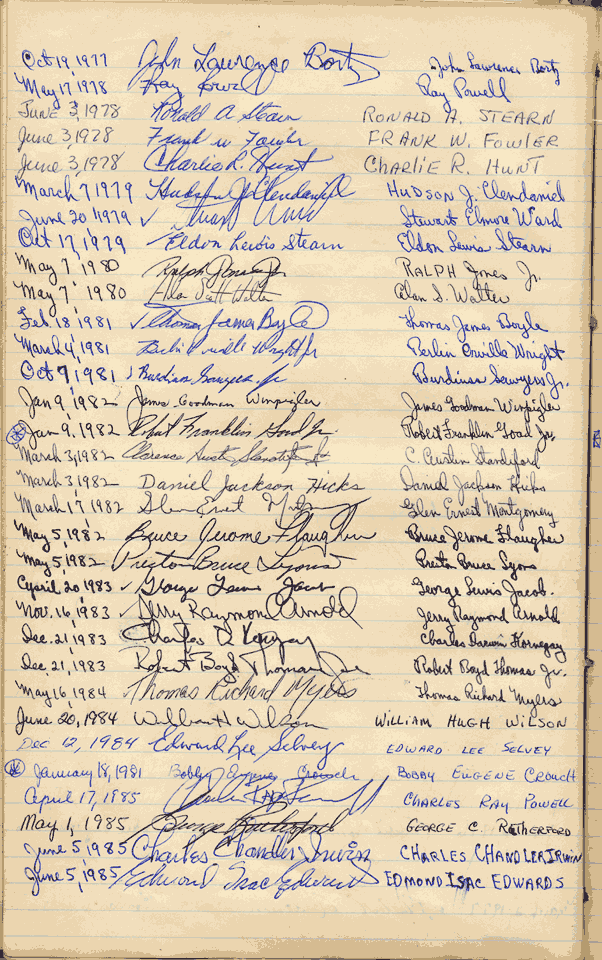 Oct 19, 1977 John Lawrence Bortz John Lawrence Bortz
May 17, 1978 Ray Powell Ray Powell
June 3, 1978 Ronald A Stearn RONALD A. STEARN
June 3, 1978 Frank W Fowler FRANK W. FOWLER
June 3, 1978 Charlie R. Hunt CHARLIE R. HUNT
March 7 1979 Hudson J Clendaniel HUDSON J. Clendaniel
June 20, 1979 ✓ Stewart Elmore Ward
Oct 17, 1979 ✓ Eldon Lewis Stearn Eldon Lewis Stearn
May 7, 1980 Ralph Jones Jr. RALPH Jones Jr.
May 7, 1980 Alan Scott Walter Alan S. Walter
Feb. 18, 1981 ✓ Thomas James Boyle Thomas James Boyle
March 4, 1981 Berlin Orville Wright Jr Berlin Orville Wright
Oct 7, 1981 ✓ Jr Sawyers Jr.
Jan 9, 1982 James Goodman Winpigler James Goodman Winpigler
Jan 9, 1982 Robert Franklin Goad Jr. Robert Franklin Goad Jr.
March 3, 1982 Clarence Austin C. Austin Standiford
March 3, 1982 Daniel Jackson Hicks Daniel Jackson Hicks
March 17, 1982 Glen Ernest Glen Ernest Montgomery
May 5, 1982 Bruce Jerome Flaugher Bruce Jerome Flaugher
May 5, 1982 Preston Bruce Lyons Preston Bruce Lyons
April 20, 1983 ✓ George Lewis Jacob George Lewis Jacob.
Nov. 16, 1983 ✓ Jerry Raymond Arnold Jerry Raymond Arnold
Dec. 21, 1983 Charles D Kornegay Charles Darwin Kornegay
Dec. 21, 1983 Robert Boyd Thomas Jr. Robert Boyd Thomas Jr.
May 16, 1984 Thomas Richard Myers Thomas Richard Myers
June 20, 1984 William H Wilson WILLIAM HUGH WILSON
Dec 12, 1984 Edward Lee Selvey EDWARD LEE SELVEY
January 18, 1981 Bobby Eugene Crouch BOBBY EUGENE CROUCH
April 17, 1985 CHARLES RAY POWELL
May 1, 1985 George Rutherford GEORGE C. RUTHERFORD
June 5, 1985 Charles Chandler Irwin CHARLES CHANDLER IRWIN
June 5, 1985 Edmond Isac Edwards EDMOND ISAC EDWARDS